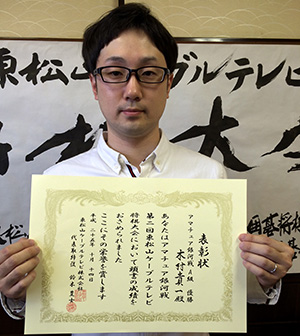 東松山ケーブルテレビ
表彰状
アマチュア銀河戦A級 優勝
木村孝一殿
あなたはアマチュア銀河戦
第二回東松山ケーブルテレビ
将棋大会において頭書の成績を
おさめられました
ここにその栄誉を賞します
平成二十五年十月十四日
東松山ケーブルテレビ株式会社
代表取締役